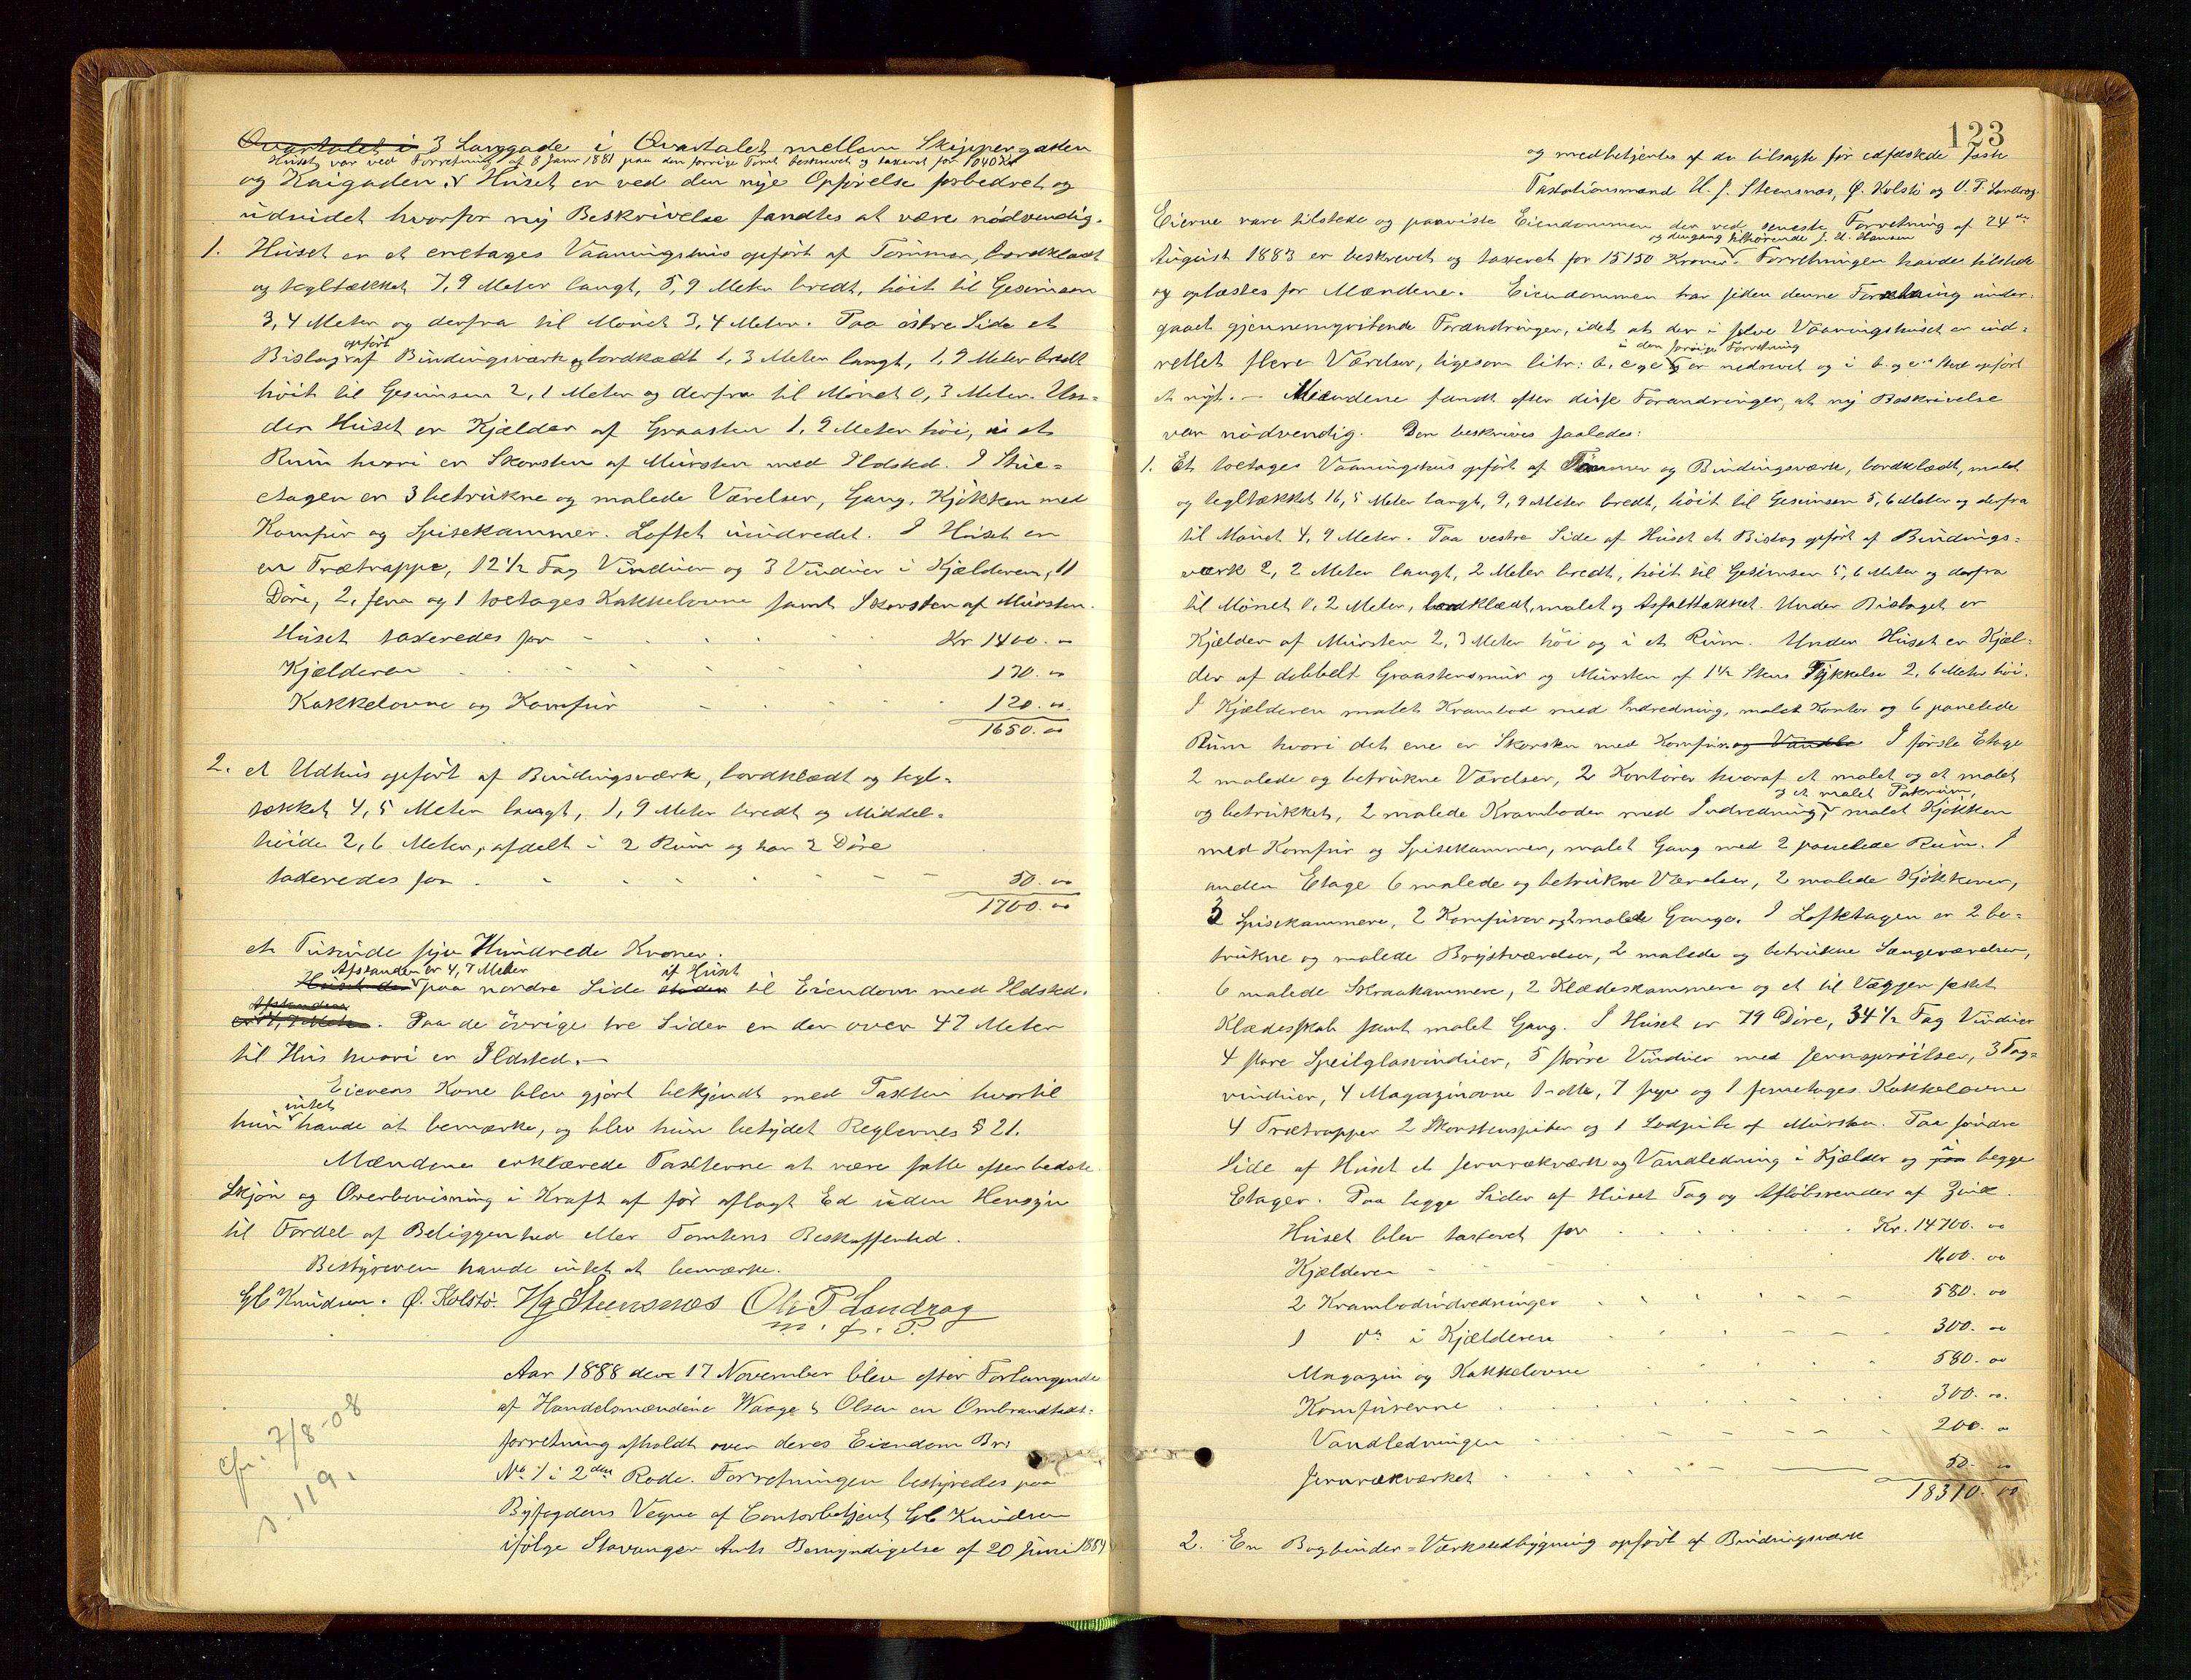 Qvartalet i 3 Langgade i Qvartalet mellem Skippergaden
Huset var ved Forretning af 8 Janr 1881 paa den forrige Tomt beskrevet og taxeret for 1040 Kr
og Kaigaden. Huset er ved den nye Opførelse forbedret og
udvidet hvorfor ny Beskrivelse fandtes at være nødvendig.
1. Huset er et enetages Vaaningshus opført af Tømmer, bordklædt
og tegltækket 7,9 Meter langt, 5,9 Meter bredt, høit til Gesimsen
3,4 Meter og derfra til Mønet 3,4 Meter. Paa østre Side et
opført
Bislag af Bindingsværk og bordklædt 1,3 Meter langt, 1,9 Meter bredt
høit til Gesimsen 2,1 Meter og derfra til Mønet 0,3 Meter. Un=
der Huset er Kjælder af Graasten 1,9 Meter høi, i et
Rum hvori er Skorsten af Mursten med Ildsted. I Stue=
etagen er 3 betrukne og malede Værelser, Gang, Kjøkken med
Komfur og Spisekammer. Loftet uindredet. I Huset er
en Trætrappe, 12 1/2 Fag Vinduer og 3 Vinduer i Kjælderen, 11
Døre, 2 Jern og 1 toetages Kakkelovne samt Skorsten af Mursten.
Huset taxeredes for Kr 1400.00
Kjælderen 130.00
Kakkelovne og Komfur 120.00
1650.00
2. et Udhus opført af Bindingsværk, bordklædt og tegl=
tækket 4,5 Meter langt, 1,9 Meter bredt og Middel=
høide 2,6 Meter, afdelt i 2 Rum og har 2 Døre
taxeredes for 50.00
1700.00
et Tusinde syv Hundrede Kroner.
Afstanden er 4,7 Meter af Huset
Huset der paa nordre Side til Eiendom med Ildsted.
Afstanden
er 4,7 Meter. Paa de øvrige tre Sider er der over 47 Meter
til Hus hvori er Ildsted.—
Eierens Kone blev gjort bekjendt med Taxten hvortil
intet
hun havde at bemærke, og blev hun betydet Reglernes § 21.
Mændene erklærede Taxterne at være satte efter bedste
Skjøn og Overbevisning i Kraft af før aflagt Ed uden Hensyn
til Fordel af Beliggenhed eller Tomtens Beskaffenhed.
Bestyreren havde intet at bemærke.
Gb Knudsen. Ø. Kolstø. Hg Steensnæs Ole T Landrag
m. f. P.
Aar 1888 den 17 November blev efter Forlangende
af Handelsmændene Waage & Olsen en Ombrandtaxt=
forretning afholdt over deres Eiendom Br:
No 1 i 2den Rode. Forretningen bestyredes paa
Byfogdens Vegne af Contorbetjent Gb Knudsen
ifølge Stavanger Amts Bemyndigelse af 20 Juni 1884
cfr. 7/8-08
s. 119.
123
og medbetjentes af de tilsagte før edfæstede faste
Taxationsmænd H. J. Steensnæs, Ø. Kolstø og O. T. Landrag.
Eierne vare tilstede og paaviste Eiendommen der ved seneste Forretning af 24de
og dengang tilhørende J. U. Hansen
August 1883 er beskrevet og taxeret for 15150 Kroner. Forretningen havdes tilstede
og oplæstes for Mændene. Eiendommen har siden denne Forretning under=
gaaet gjennemgribende Forandringer, idet at der i selve Vaaningshuset er ind=
i den forrige Forretning
rettet flere Værelser, ligesom litr: b, c og e er nedrevet og i b og c's Sted opført
et nyt.— Mændene fandt efter disse Forandringer, at ny Beskrivelse
var nødvendig. Den beskrives saaledes:
1. Et toetages Vaaningshus opført af Tømmer og Bindingsværk, bordklædt, malet
og tegltækket 16,5 Meter langt, 9,9 Meter bredt, høit til Gesimsen 5,6 Meter og derfra
til Mønet 4,9 Meter. Paa vestre Side af Huset et Bislag opført af Bindings=
værk 2,2 Meter langt, 2 Meter bredt, høit til Gesimsen 5,6 Meter og derfra
til Mønet 0,2 Meter, bordklædt, malet og Asfalttækket. Under Bislaget er
Kjælder af Mursten 2,3 Meter høi og i et Rum. Under Huset er Kjæl=
der af dobbelt Graastensmur og Mursten af 1 1/2 Stens Tykkelse 2,6 Meter høi.
I Kjælderen malet Krambod med Indredning, malet Kontor og 6 panelede
Rum hvori det ene er Skorsten med Komfur og Vandle I første Etage
2 malede og betrukne Værelser, 2 Kontorer hvoraf et malet og et malet
og et malet Pakrum,
og betrukket, 2 malede Kramboder med Indredning, malet Kjøkken
med Komfur og Spisekammer, malet Gang med 2 panelede Rum. I
anden Etage 6 malede og betrukne Værelser, 2 malede Kjøkkener,
3 Spisekammere, 2 Komfurer og 2 malede Gange. I Loftetagen er 2 be=
trukne og malede Brystværelser, 2 malede og betrukne Sængeværelser,
6 malede Skraakammere, 2 Klædeskammere og et til Væggen fæstet
Klædesskab samt malet Gang. I Huset er 79 Døre, 34 1/2 Fag Vinduer
4 store Speilglasvinduer, 5 større Vinduer med Jernsprøitser, 3 Tag=
vinduer, 4 Magazinovne 1 dito, 7 syv og 1 femetages Kakkelovne
4 Trætrapper 2 Skorstenspiber og 1 Lodpibe af Mursten. Paa søndre
i
Side af Huset et Jernrækværk og Vandledning i Kjælder og paa begge
Etager. Paa begge Sider af Huset Tag og Afløbsrender af Zink.
Huset blev taxeret for Kr. 14700.00
Kjælderen 1600.00
2 Krambodindredninger 580.00
1 do i Kjælderen 300.00
Magazin og Kakkelovne 580.00
Komfurerne 300.00
Vandledningen 200.00
Jernrækværket 50.00
18310.00
2. En Bogbinder=Værkstedbygning opført af Bindingsværk